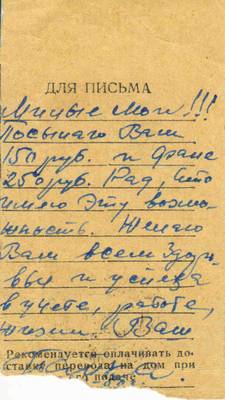 ДЛЯ ПИСЬМА
Милые мои!!!
Посылаю Вам
150 руб. и Фане
250 руб. Рад, что
имею эту возмо-
жность. Желаю
Вам всем здоро-
вья и успеха
в учебе, работе,
жизни. Ваш
Рекомендуется оплачивать до-
ставку перевода на дом при
его подаче.